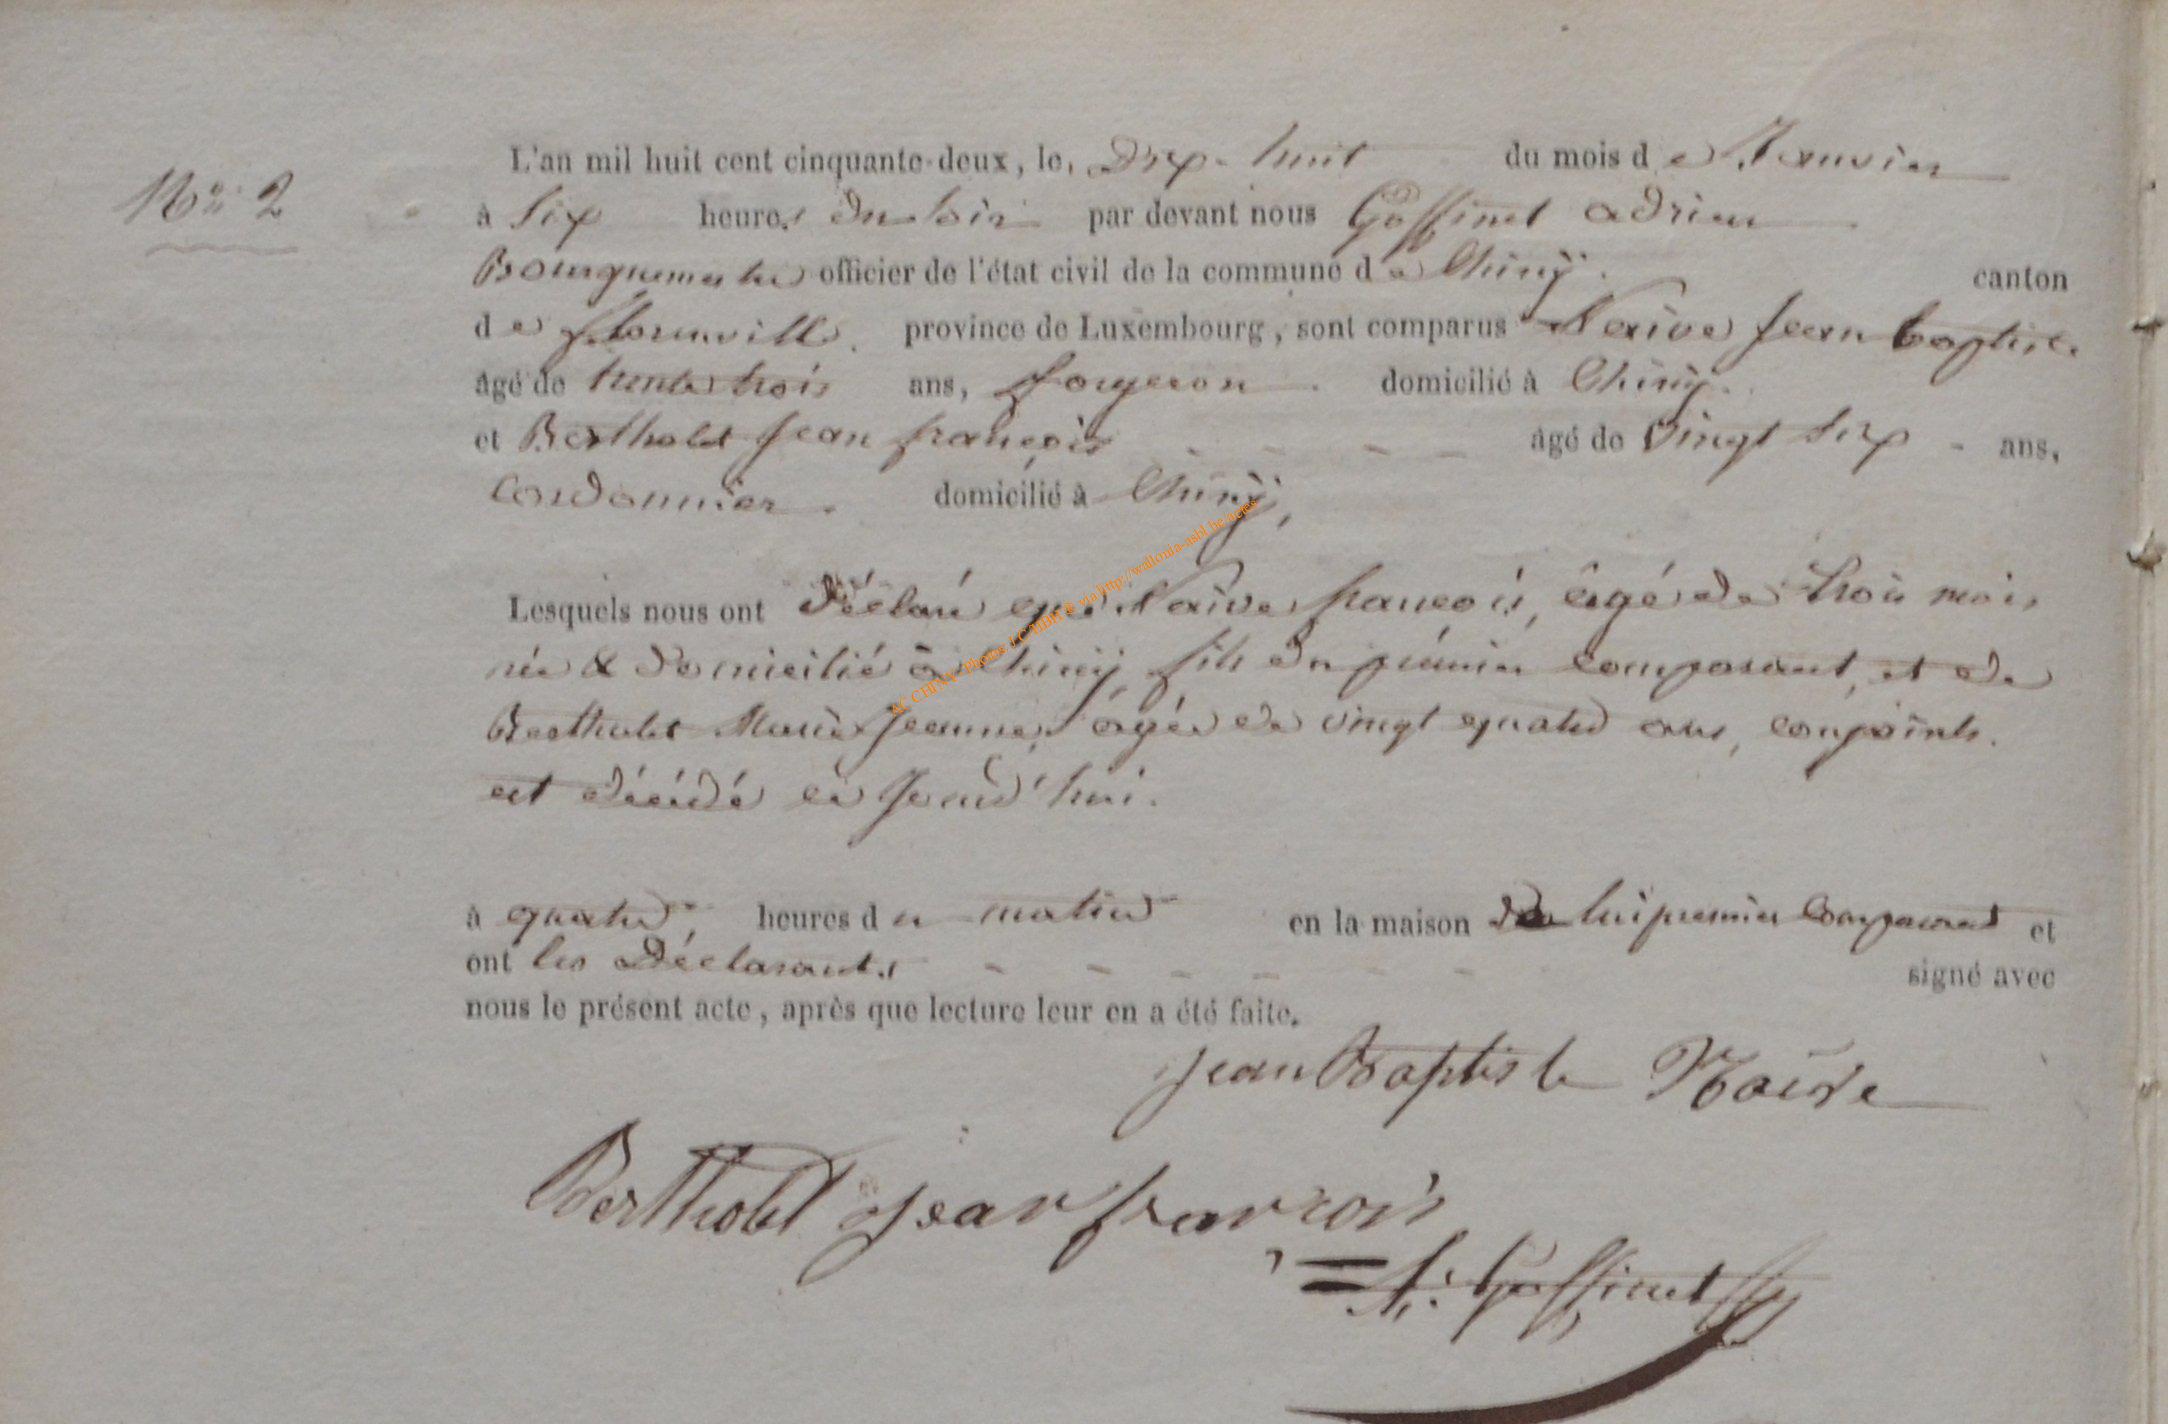 L'an mil huit cent cinquante-deux, le, Dix-huit du mois de Janvier
No: 2
à six heures du soir par devant nous Goffinet adrien
Bourguemestre officier de l'état civil de la commune de Chiny. canton
de florenville. province de Luxembourg, sont comparus Naïve Jean baptiste
âgé de trente trois ans, forgeron. domicilié à Chiny.
et Bertholet Jean françois âgé de vingt six - ans,
Cordonnier. domicilié à Chiny,
Lesquels nous ont déclaré que Naïve françois, âgé de trois mois
née & domicilié à Chiny, fils du prémier comparant, et de
Bertholet Marie Jeanne, âgée de vingt quatre ans, conjoints.
est décédé ce Jourd'hui.
à quatre, heures du matin en la maison de lui premier Comparant et
ont les Déclarants signé avec
nous le présent acte, après que lecture leur en a été faite.
Jean Baptiste Naive
Bertholet Jean françois
A: Goffinet
AC CHINY Photos / © via http://wallonia-asbl.be/actes